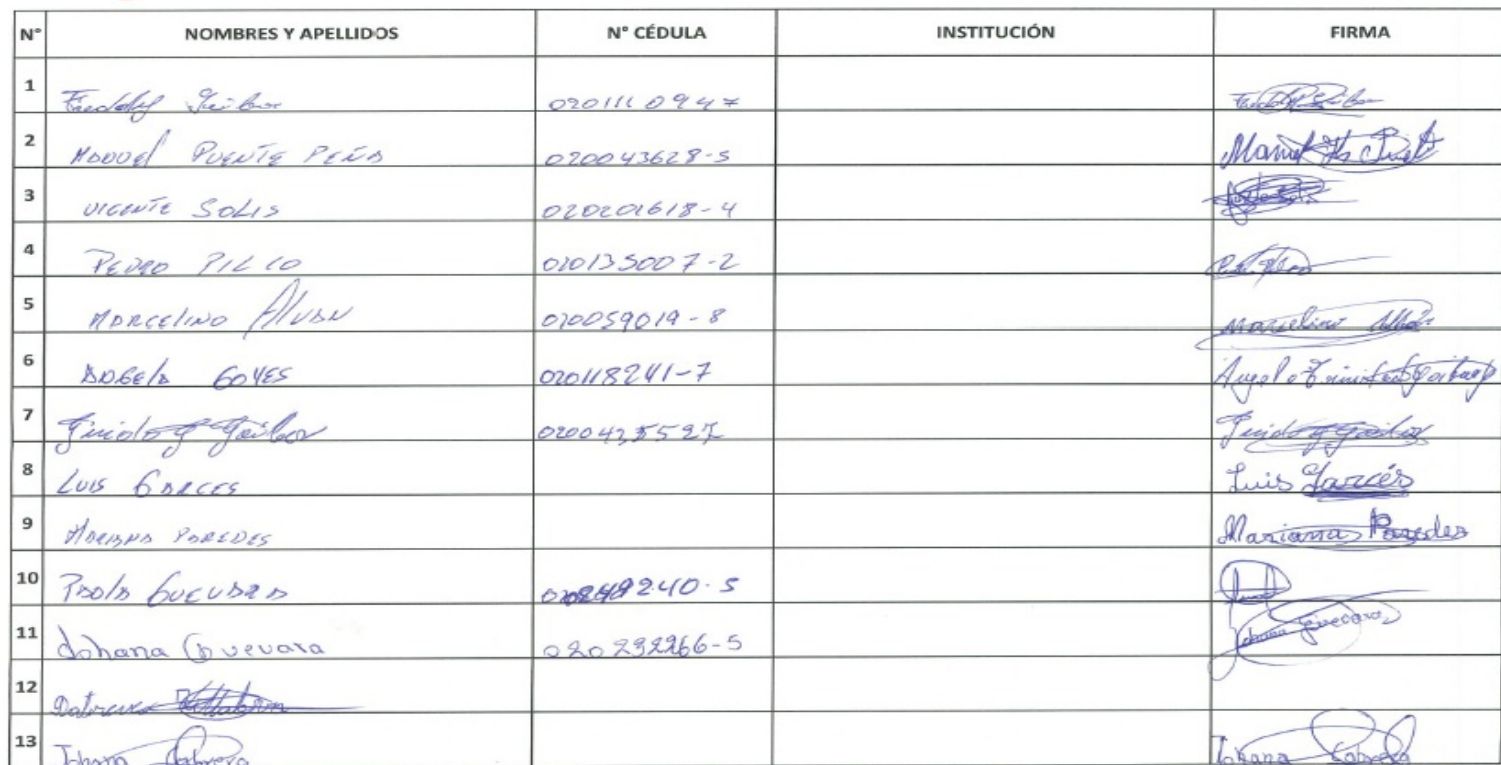 N° NOMBRES Y APELLIDOS N° CÉDULA INSTITUCIÓN FIRMA
1 Freddy Gaibor 0201110947
2 Manuel PUENTE PEÑA 020043628-5 Manuel
3 VICENTE SOLIS 020201618-4
4 PEDRO PILCO 020135007-2
5 MARCELINO Alvan 020059019-8 Marcelino
6 ANGELA GOYES 020118241-7 Angela Trinidad
7 Guido Gaibor Guido Gaibor
8 LUIS GARCES Luis Garcés
9 MARIANA PAREDES Mariana Paredes
10 PAOLA GUEVARA
11 Johana Guevara 020232266-5 Johana Guevara
12
13 Johana Cabrera Johana Cabrera